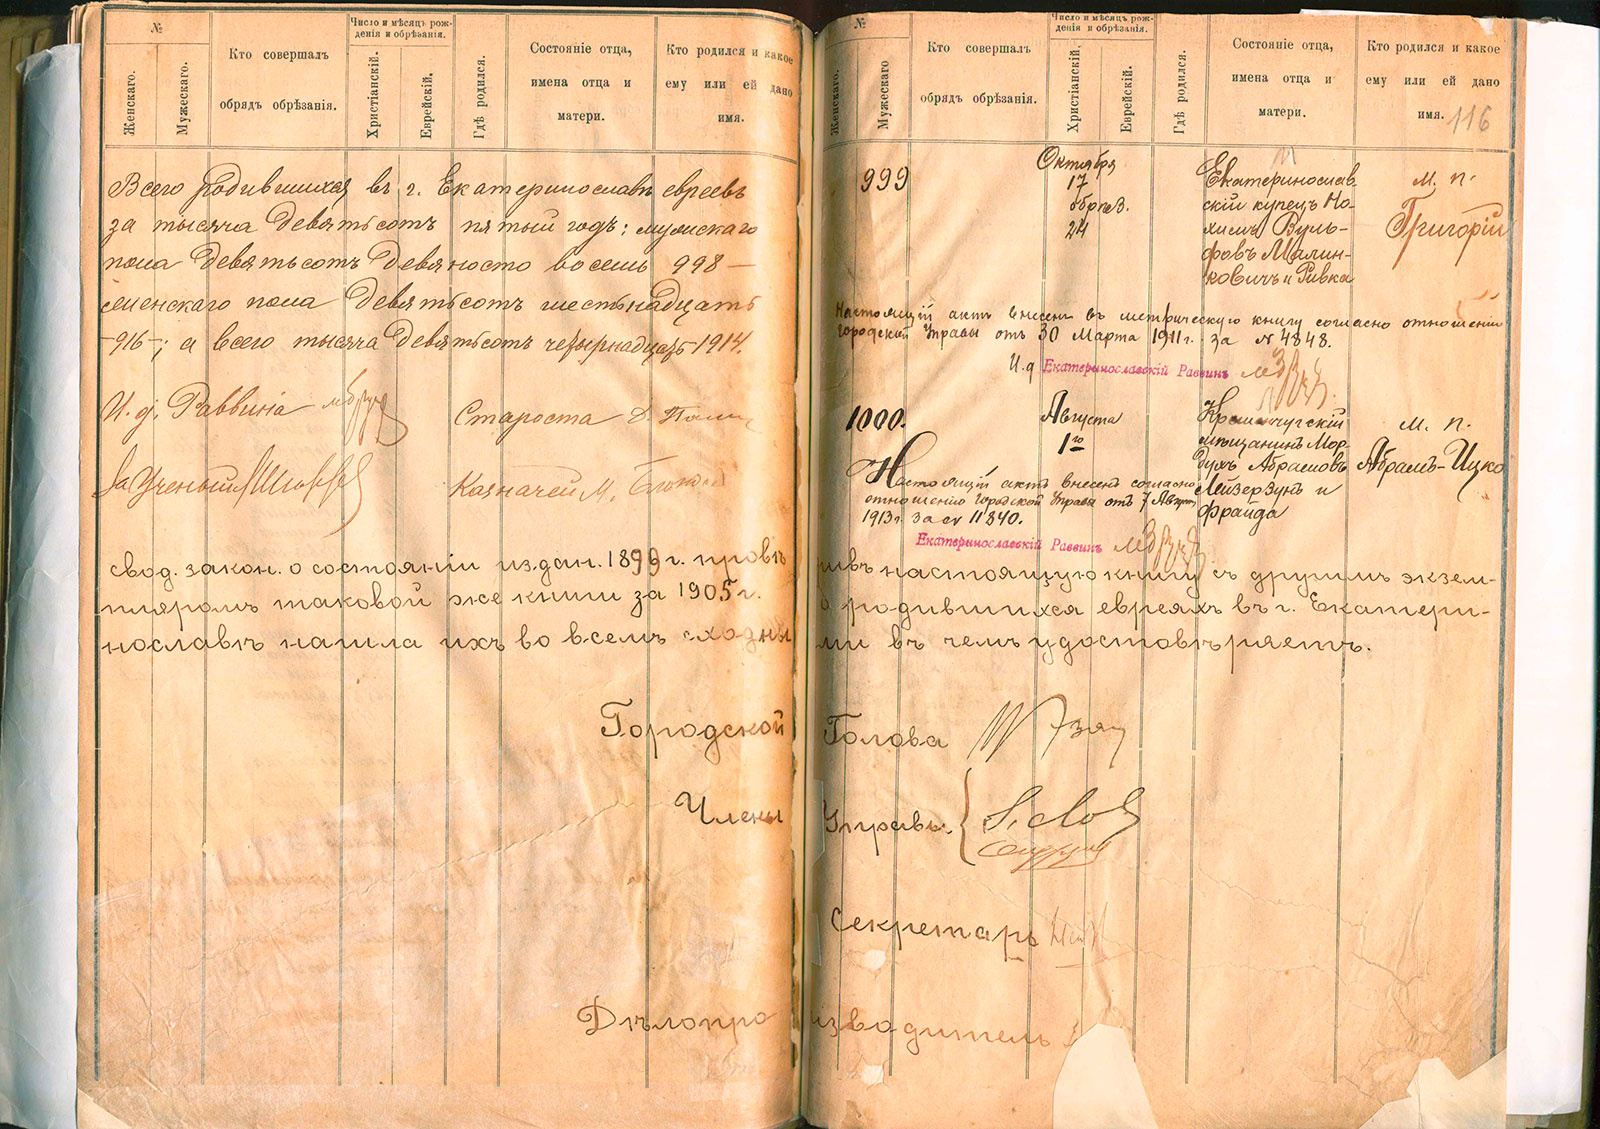 №
Число и мѣсяцъ рож-
денія и обрѣзанія.
Женскаго.
Мужескаго.
Кто совершалъ
обрядъ обрѣзанія.
Христіанскій.
Еврейскій.
Гдѣ родился.
Состояніе отца,
имена отца и
матери.
Кто родился и какое
ему или ей дано
имя.
Всего родившихся въ г. Екатеринославѣ евреевъ
за тысяча девятьсотъ пятый годъ: мужскаго
пола девятьсотъ девяносто восемь 998 —
женскаго пола девятьсотъ шестьнадцать
-916-; а всего тысяча девятьсотъ четырнадцать 1914.
И. д. Раввина
Староста Д.
За Ученый
Казначей М.
свод. закон. о состояніи издан. 1899 г. провѣ
пляромъ таковой же книги за 1905 г.
нославѣ нашла ихъ во всемъ сходны
Городской
Члены
Дѣлопро
№
Число и мѣсяцъ рож-
денія и обрѣзанія.
Женскаго.
Мужескаго
Кто совершалъ
обрядъ обрѣзанія.
Христіанскій.
Еврейскій.
Гдѣ родился.
Состояніе отца,
имена отца и
матери.
Кто родился и какое
ему или ей дано
имя.
116
999
Октября
17
обрѣз.
24
Екатеринослав-
скій купецъ Но-
химъ Вуль-
фовъ Малин-
ковичъ и Ривка
м. п.
Григорій
Настоящій актъ внесенъ въ метрическую книгу согласно отношенію
Городской Управы отъ 30 Марта 1911 г. за № 4848.
И. д Екатеринославскій Раввинъ
1000.
Августа
1го
Кременчугскій
мѣщанинъ Мор-
духъ Абрамовъ
Лейзерзунъ и
Фрайда
м. п.
Абрамъ-Ицко
Настоящій актъ внесенъ согласно
отношенію Городской Управы отъ 7 Августа
1913 г. за № 11840.
Екатеринославскій Раввинъ
ивъ настоящую книгу съ другимъ экзем-
о родившихся евреяхъ въ г. Екатери-
ми въ чемъ удостовѣряетъ.
Голова
Управы:
Секретарь
изводитель